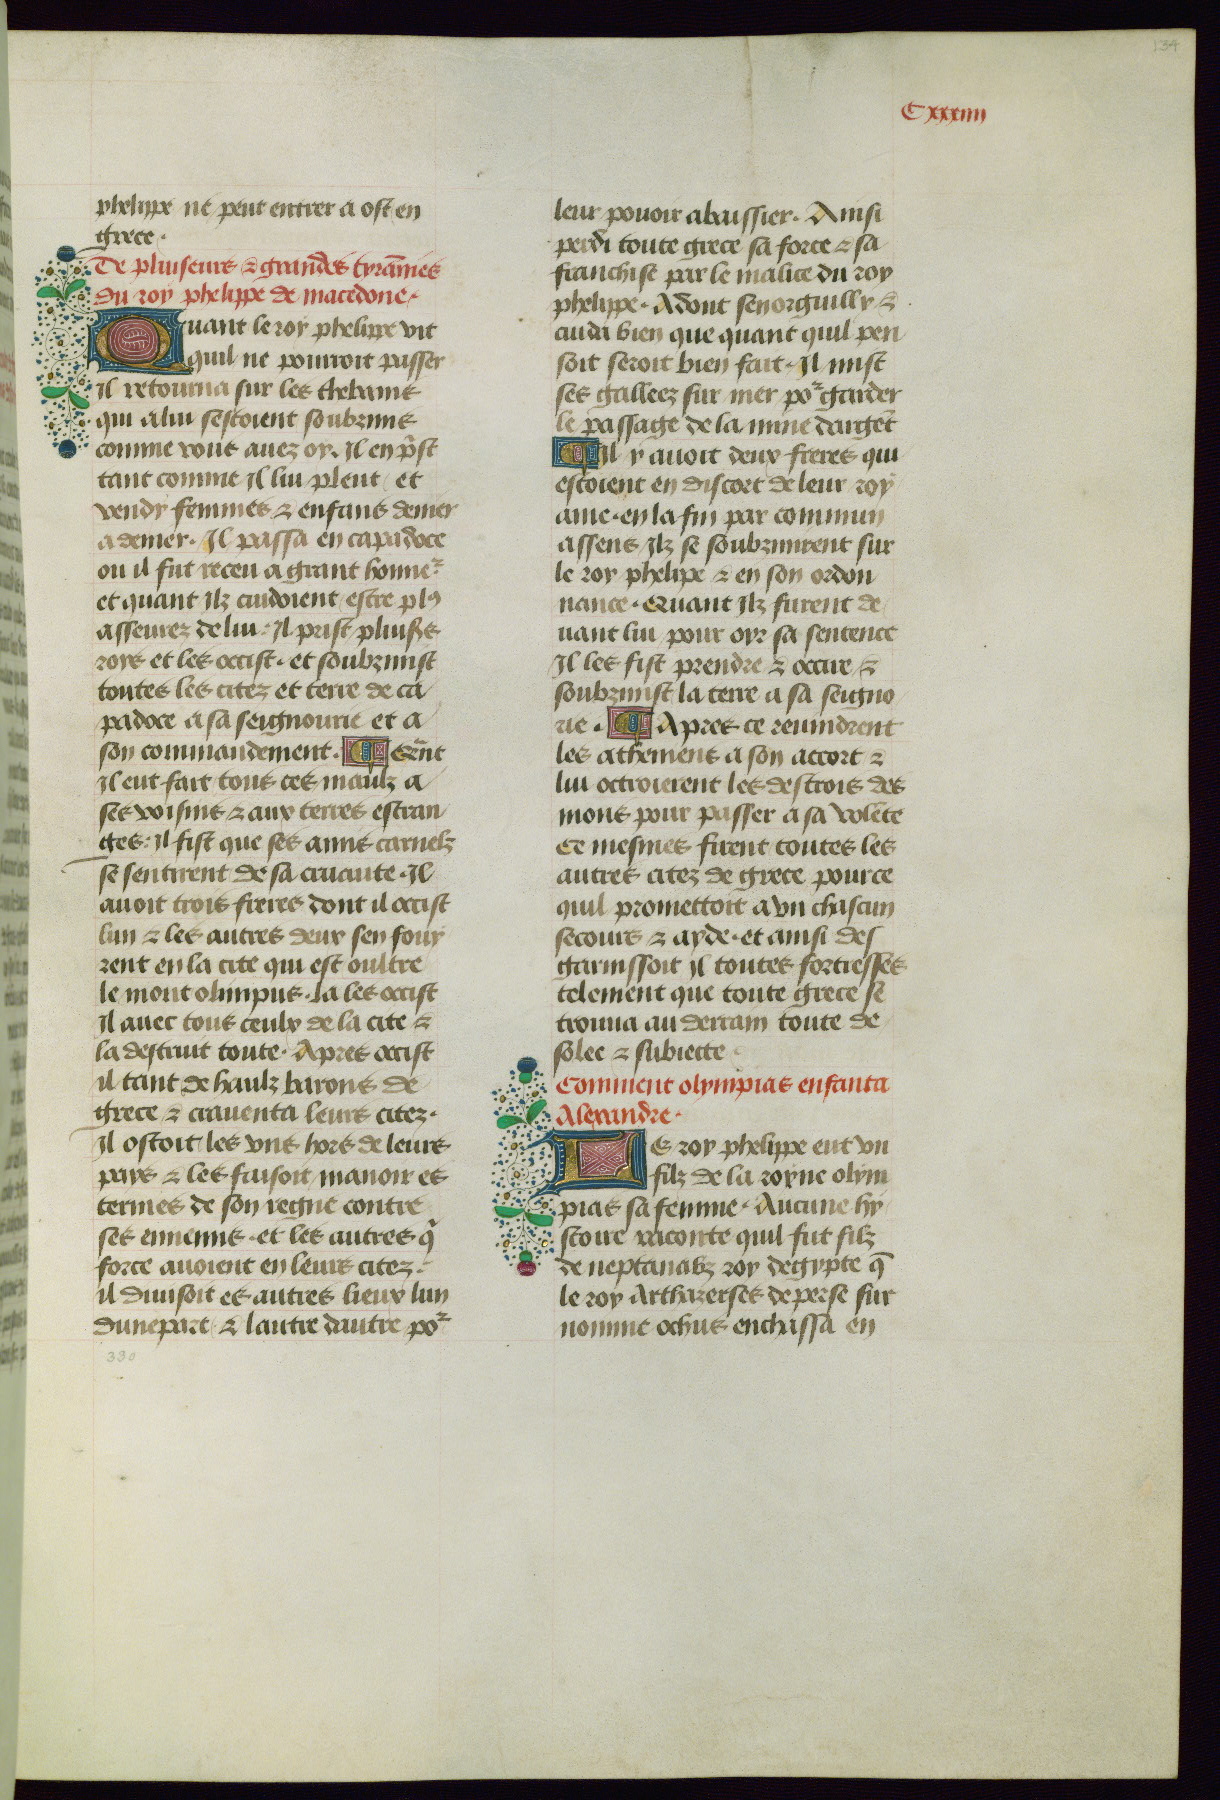 134
Cxxxiiii
phelippe ne peut entrer a ost en
grece.
De pluiseurs & grandes tyrãnies
du roy phelippe de macedone.
Quant le roy phelippe vit
quil ne pourroit passer
Il retourna sur les thebains
qui a lui sestoient soubzmis
comme vous auez oy. Il en pr̃st
tant comme Il lui pleut et
vendy femmes & enfans denier
a denier. Il passa en capadoce
ou il fut receu a grant honneʳ
et quant Ilz cuidoient estre plꝰ
asseurez de lui. Il prist pluiss̃
roys et les occist. et soubzmist
toutes les citez et terre de ca
padoce a sa seignourie et a
son commandement. Quãt
Il eut fait tous ces maulz a
ses voisins & aux terres estran
ges. Il fist que ses amis carnelz
se sentirent de sa cruaute. Il
auoit trois freres dont il occist
lun & les autres deux sen fouy
rent en la cite qui est oultre
le mont olimpus. la les occist
Il auec tous ceulx de la cite &
la destruit toute. Apres occist
il tant de haulz barons de
grece & crauenta leurs citez.
Il ostoit les vns hors de leurs
pays & les faisoit manoir es
termes de son regne contre
ses ennemis. et les autres q̃
force auoient en leurs citez.
il diuisoit es autres lieux lun
dunepart & lautre dautre poʳ
330
leur pouoir abaissier. Ainsi
perdi toute grece sa force & sa
franchise par le malice du roy
phelippe. Adont senorguilly &
cuida bien que quant quil pen
soit seroit bien fait. Il mist
ses galleez sur mer poʳ garder
le passage de la mine dargẽt
Il y auoit deux freres qui
estoient en discort de leur roy
ame. en la fin par commun
assens Ilz se soubzmirent sur
le roy phelipe & en son ordon
nance. Quant Ilz furent de
uant lui pour oyr sa sentence
Il les fist prendre & occire &
soubzmist la terre a sa seigno
rie. Apres ce reuindrent
les atheniens a son accort &
lui octroierent les destrois des
mons pour passer a sa volẽte
Ce mesmes firent toutes les
autres citez de grece pource
quil promettoit a vn chascun
secours & ayde. et ainsi des
garnissoit Il toutes fortresses
telement que toute grece se
trouua au derrain toute de
solee & subiecte.
Comment olympias enfanta
Alexandre.
Le roy phelippe eut vn
filz de la royne olym
pias sa femme. Aucune hy
stoire raconte quil fut filz
de neptanabz roy degypte q̃
le roy Artharerses de perse sur
nomme ochus enchassa en